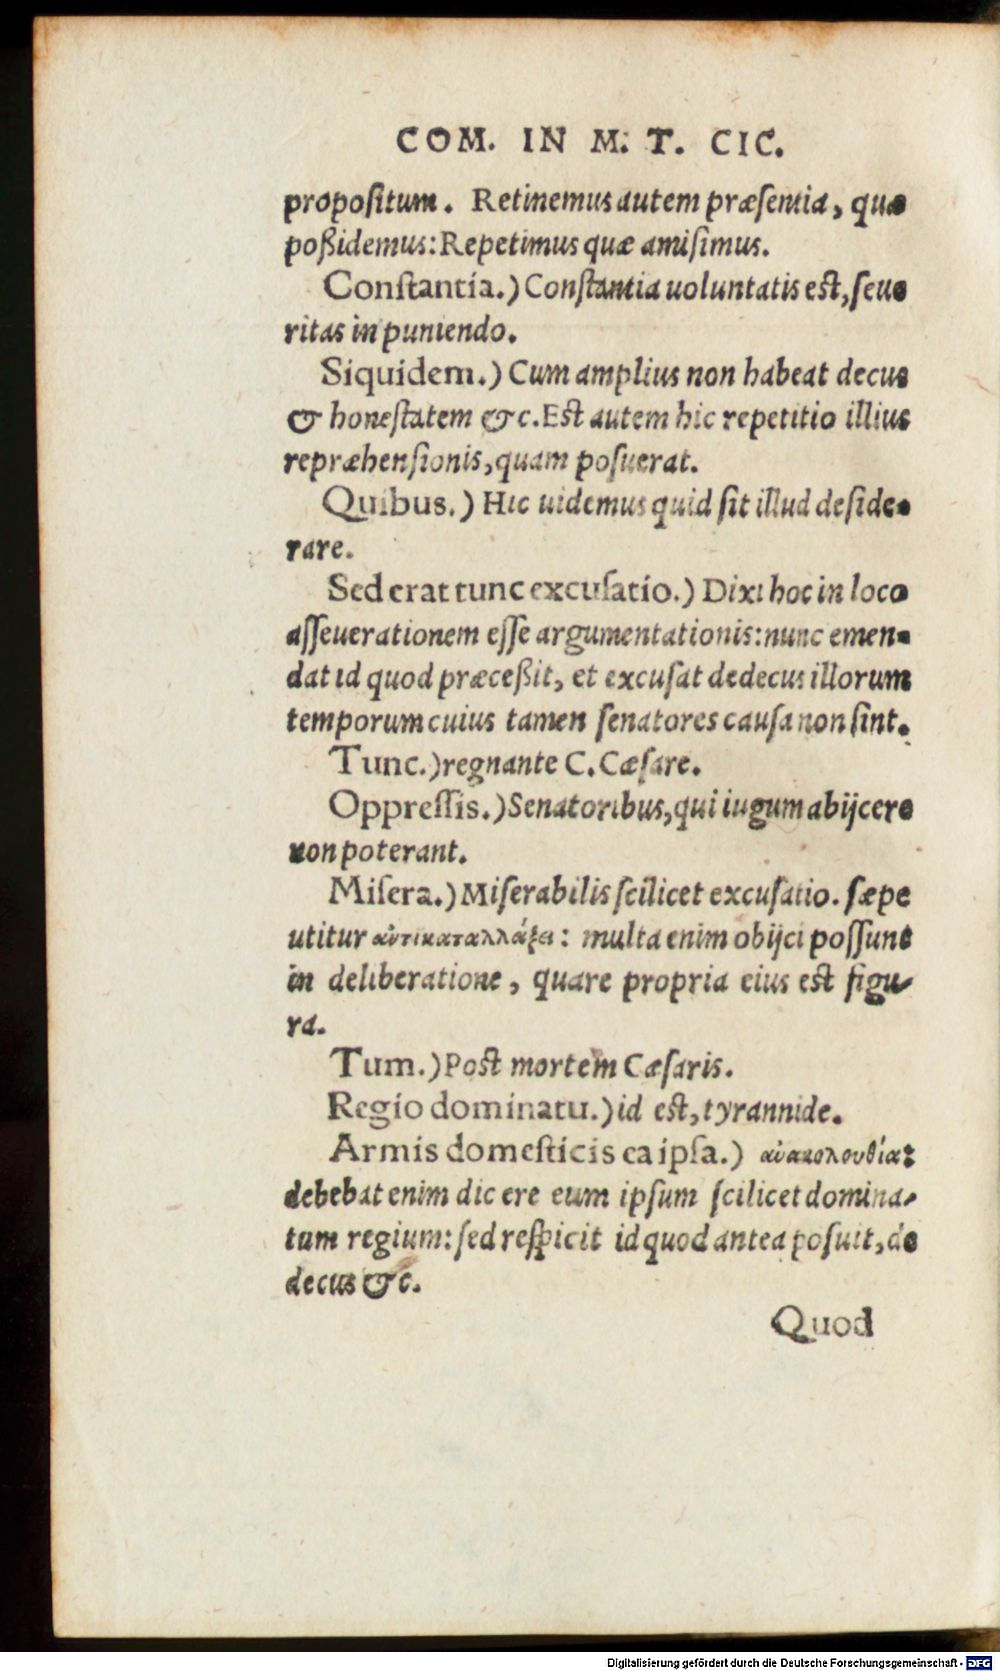 COM. IN M. T. CIC.
propositum. Retinemus autem præsentia, quæ
poßidemus: Repetimus quæ amisimus.
Constantia.) Constantia uoluntatis est, seue
ritas in puniendo.
Siquidem.) Cum amplius non habeat decus
& honestatem &c. Est autem hic repetitio illius
repræhensionis, quam posuerat.
Quibus.) Hic uidemus quid sit illud deside-
rare.
Sed erat tunc excusatio.) Dixi hoc in loco
asseuerationem esse argumentationis: nunc emen-
dat id quod præceßit, et excusat dedecus illorum
temporum cuius tamen senatores causa non sint.
Tunc.) regnante C. Cæsare.
Oppressis.) Senatoribus, qui iugum abijcere
non poterant.
Misera.) Miserabilis scilicet excusatio. sæpe
utitur ἀντικαταλλάξει: multa enim obijci possunt
in deliberatione, quare propria eius est figu-
ra.
Tum.) Post mortem Cæsaris.
Regio dominatu.) id est, tyrannide.
Armis domesticis ea ipsa.) ἀνακολουθία:
debebat enim dicere eum ipsum scilicet domina-
tum regium: sed respicit id quod antea posuit, de
decus &c.
Quod
Digitalisierung gefördert durch die Deutsche Forschungsgemeinschaft - DFG